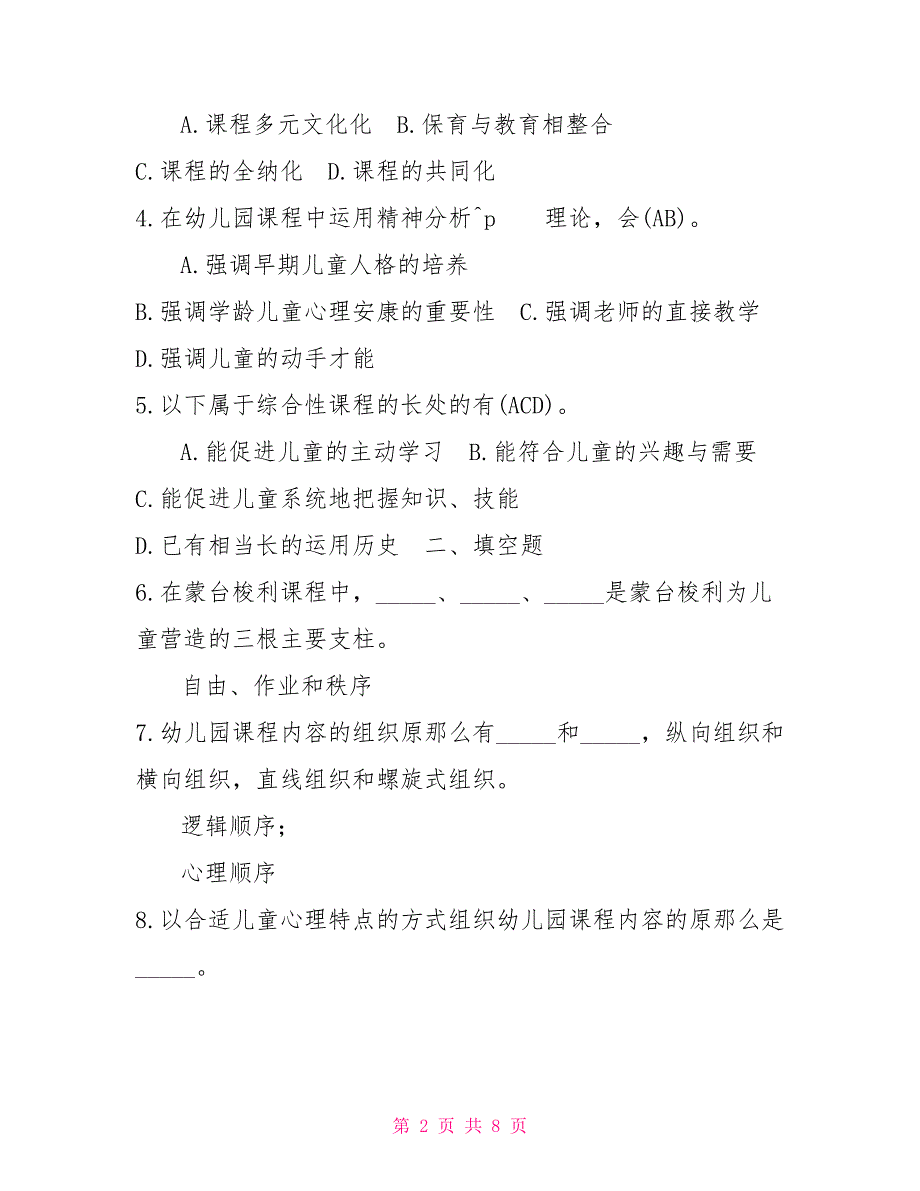 A.课程多元文化化 B.保育与教育相整合
C.课程的全纳化 D.课程的共同化
4.在幼儿园课程中运用精神分析^p 理论，会(AB)。
A.强调早期儿童人格的培养
B.强调学龄儿童心理安康的重要性 C.强调老师的直接教学
D.强调儿童的动手才能
5.以下属于综合性课程的长处的有(ACD)。
A.能促进儿童的主动学习 B.能符合儿童的兴趣与需要
C.能促进儿童系统地把握知识、技能
D.已有相当长的运用历史 二、填空题
6.在蒙台梭利课程中，_____、_____、_____是蒙台梭利为儿
童营造的三根主要支柱。
自由、作业和秩序
7.幼儿园课程内容的组织原那么有_____和_____，纵向组织和
横向组织，直线组织和螺旋式组织。
逻辑顺序；
心理顺序
8.以合适儿童心理特点的方式组织幼儿园课程内容的原那么是
_____。
第 2 页 共 8 页